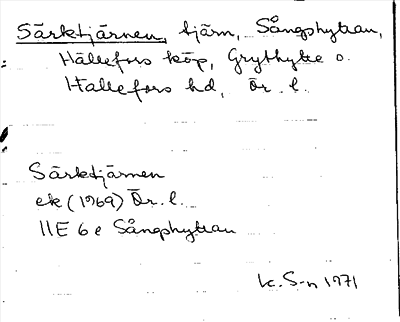 Särktjärnen, tjärn, Sångshyttan,
Hällefors köp, Grythytte o.
Hällefors hd, Ör. l.
Särktjärnen
ek (1969) Ör. l.
11E 6e Sångshyttan
K. S-n 1971